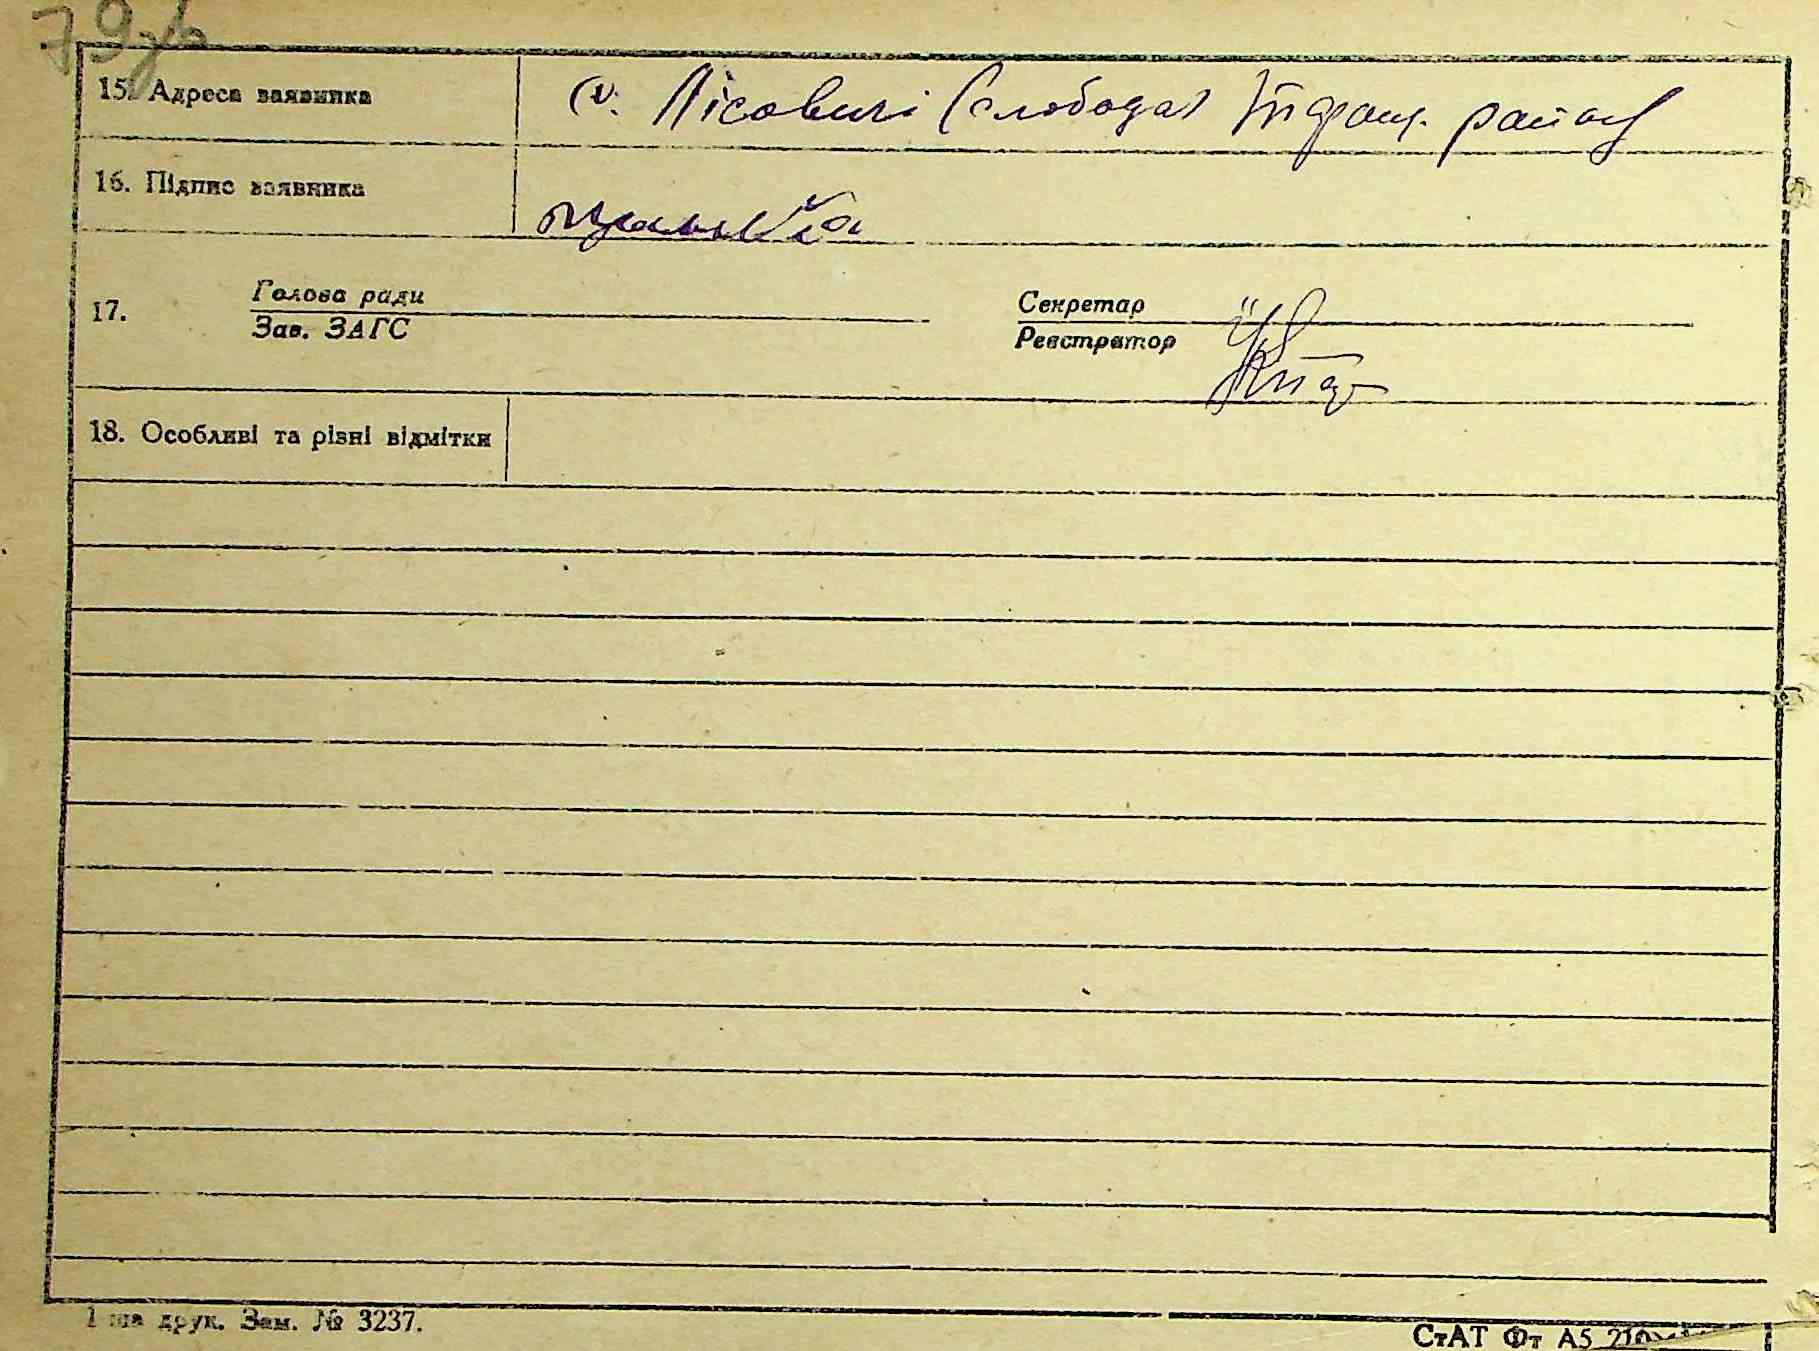 79зв
15. Адреса заявника с. Лісовичі (слобода) Таращ. району
16. Підпис заявника
17. Голова ради Секретар
Зав. ЗАГС Реєстратор
18. Особливі та різні відмітки
1-ша друк. Зам. № 3237.
СтАТ Фт А5 210